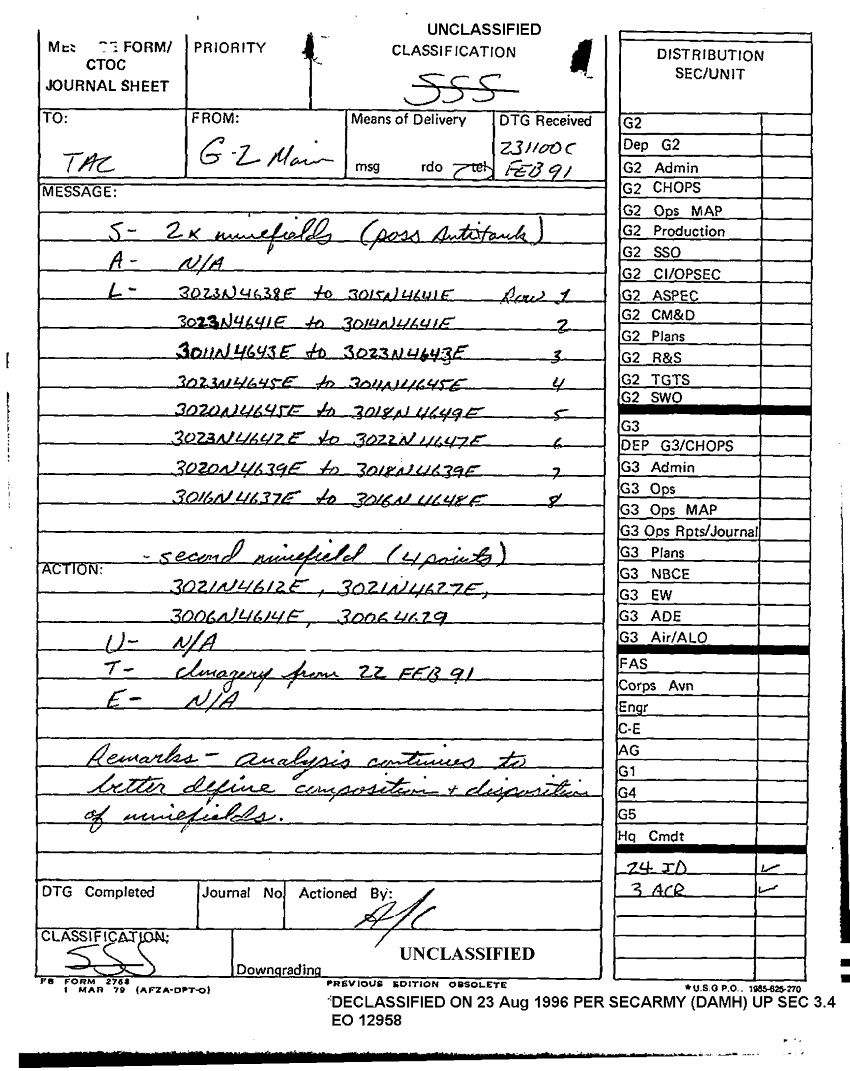 UNCLASSIFIED
FORM/
CTOC
JOURNAL SHEET
PRIORITY
CLASSIFICATION
SSS
TO:
TAC
FROM:
G-2 Main
Means of Delivery
msg rdo tel
DTG Received
231100C
FEB 91
MESSAGE:
S- 2x minefields (poss Antitank)
A- N/A
L- 3023N4638E to 3015N4641E Row 1
3023N4641E to 3014N4641E 2
3011N4643E to 3023N4643E 3
3023N4645E to 3011N4645E 4
3020N4645E to 3018N4649E 5
3023N4642E to 3022N4647E 6
3020N4639E to 3018N4639E 7
3016N4637E to 3016N4648E 8
-second minefield (4 points)
ACTION:
3021N4612E, 3021N4627E,
3006N4614E, 30064629
U- N/A
T- Imagery from 22 FEB 91
E- N/A
Remarks- analysis continues to
better define composition + disposition
of minefields.
DTG Completed
Journal No.
Actioned By:
A/C
CLASSIFICATION:
SSS
UNCLASSIFIED
Downgrading
FB FORM 2768
1 MAR 79 (AFZA-DPT-O)
PREVIOUS EDITION OBSOLETE
DISTRIBUTION
SEC/UNIT
G2
Dep G2
G2 Admin
G2 CHOPS
G2 Ops MAP
G2 Production
G2 SSO
G2 CI/OPSEC
G2 ASPEC
G2 CM&D
G2 Plans
G2 R&S
G2 TGTS
G2 SWO
G3
DEP G3/CHOPS
G3 Admin
G3 Ops
G3 Ops MAP
G3 Ops Rpts/Journal
G3 Plans
G3 NBCE
G3 EW
G3 ADE
G3 Air/ALO
FAS
Corps Avn
Engr
C-E
AG
G1
G4
G5
Hq Cmdt
24 ID ✓
3 ACR ✓
*U.S.G P.O.. 1985-625-270
DECLASSIFIED ON 23 Aug 1996 PER SECARMY (DAMH) UP SEC 3.4
EO 12958